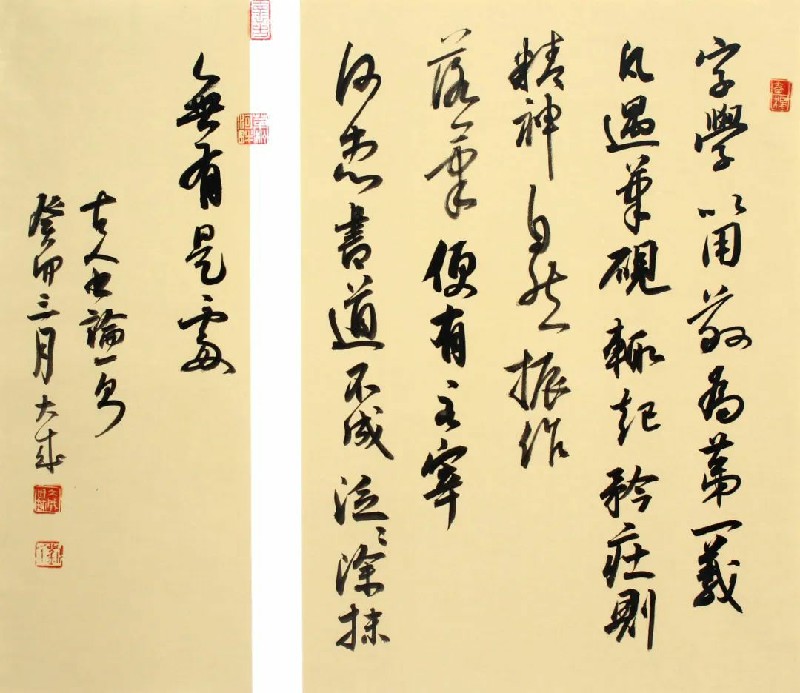 字學以用敬為第一義
凡遇筆硯輒起矜莊則
精神自然振作
落筆便有主宰
何患書道不成泛泛塗抹
無有是處
古人書論一則
癸卯三月大成